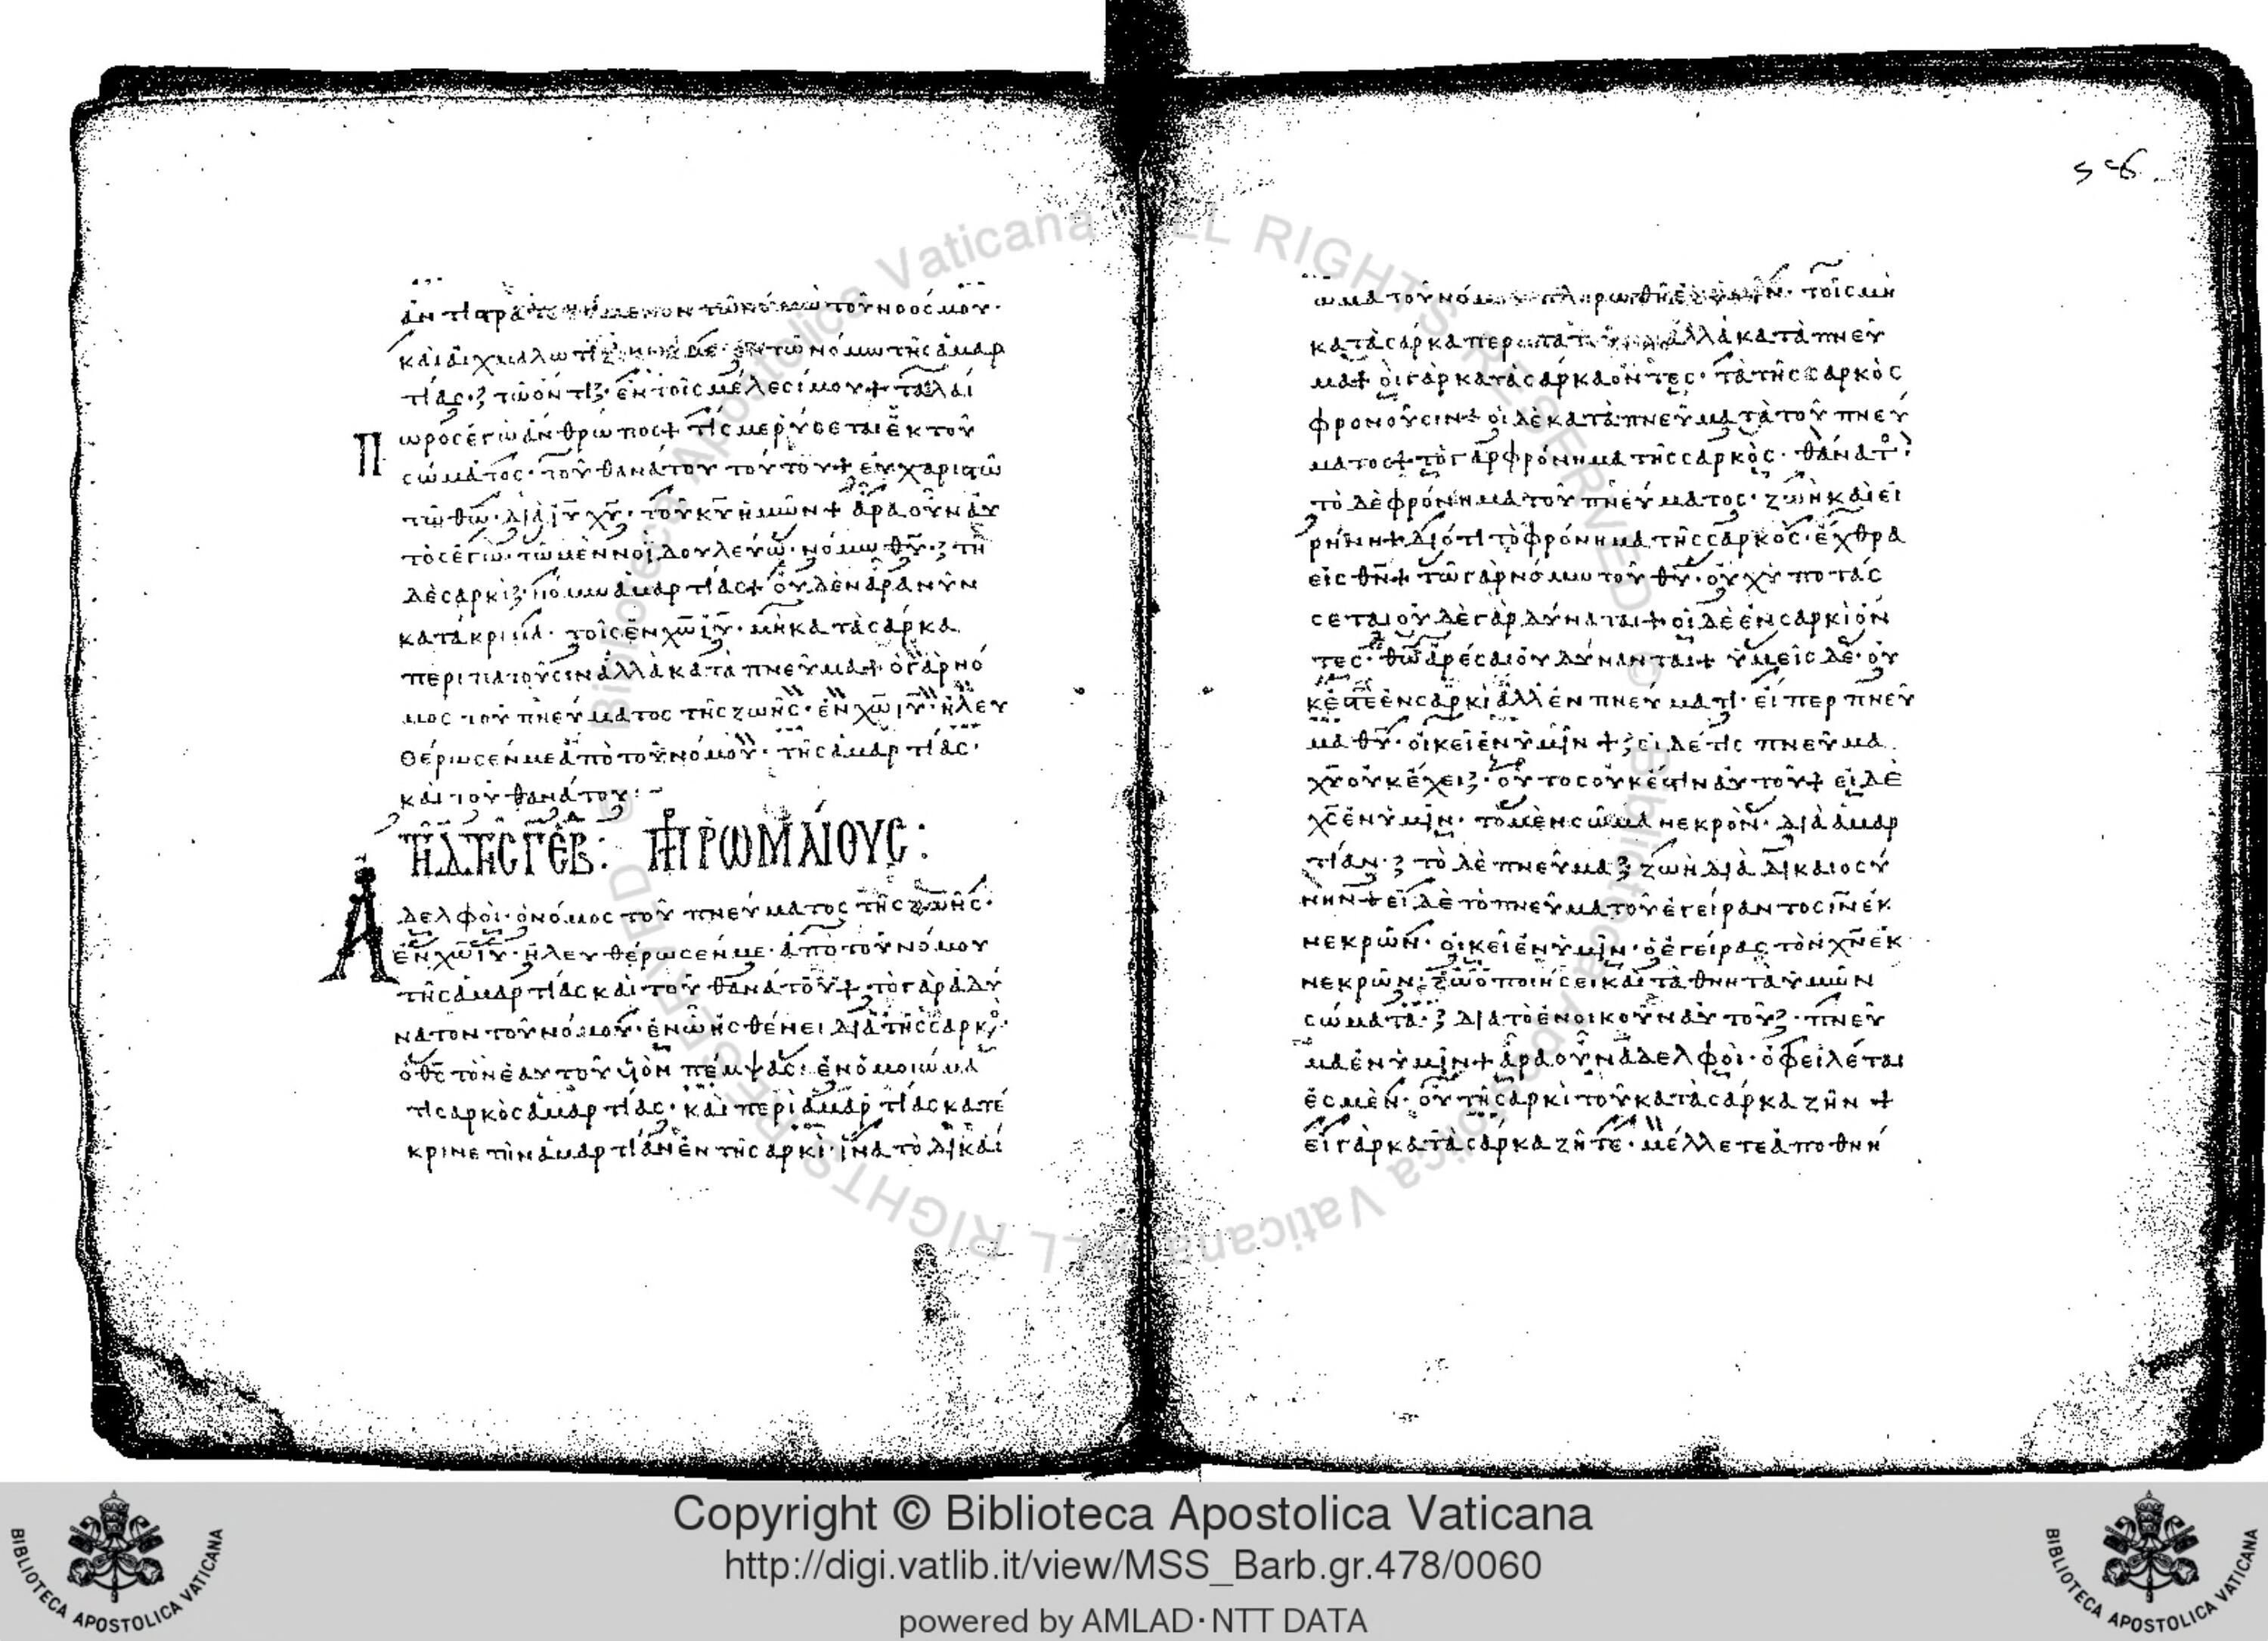 ἀντιστρατευόμενον τῶ νόμω τοῦ νοός μου·
καὶ αἰχμαλωτίζοντά με· ἐν τῶ νόμω τῆς ἁμαρ
τίας· τῶ ὄντι ἐν τοῖς μέλεσί μου + ταλαί
πωρος ἐγὼ ἄνθρωπος + τίς με ρύσεται ἐκ τοῦ
σώματος· τοῦ θανάτου τούτου + εὐχαριστῶ
τῶ θῶ· διὰ ιυ χυ· τοῦ κυ ἡμῶν + ἄρα οὖν αὐ
τὸς ἐγὼ· τῶ μὲν νοῒ δουλεύω· νόμω θυ· τῆ
δὲ σαρκὶ νόμω ἁμαρτίας + οὐδὲν ἄρα νῦν
κατάκριμα· τοῖς ἐν χω ιυ· μὴ κατὰ σάρκα
περιπατοῦσιν ἀλλὰ κατὰ πνεῦμα + ὁ γὰρ νό
μος τοῦ πνεύματος τῆς ζωῆς· ἐν χω ιυ· ἠλευ
θέρωσέν με ἀπὸ τοῦ νόμου· τῆς ἁμαρτίας·
καὶ τοῦ θανάτου:~
ΤΗ Δ ΤΗΣ Γ ΕΒ: ΠΡ ΡΩΜΑΙΟΥΣ:
Ἀδελφοὶ· ὁ νόμος τοῦ πνεύματος τῆς ζωῆς·
ἐν χω ιυ· ἠλευθέρωσέν με· ἀπὸ τοῦ νόμου
τῆς ἁμαρτίας καὶ τοῦ θανάτου + τὸ γὰρ ἀδύ
νατον τοῦ νόμου· ἐν ὧ ἠσθένει διὰ τῆς σαρκ·
ὁ θς τὸν ἑαυτοῦ υἱὸν πέμψας· ἐν ὁμοιώμα
τι σαρκὸς ἁμαρτίας· καὶ περὶ ἁμαρτίας κατέ
κρινε τὴν ἁμαρτίαν ἐν τῆ σαρκὶ· ἵνα τὸ δικαί
ωμα τοῦ νόμου πληρωθῆ ἐν ἡμῖν· τοῖς μὴ
κατὰ σάρκα περιπατοῦσιν ἀλλὰ κατὰ πνεῦ
μα + οἱ γὰρ κατὰ σάρκα ὄντες· τὰ τῆς σαρκὸς
φρονοῦσιν + οἱ δὲ κατὰ πνεῦμα τὰ τοῦ πνεύ
ματος + τὸ γὰρ φρόνημα τῆς σαρκὸς· θάνατ
τὸ δὲ φρόνημα τοῦ πνεύματος· ζωὴ καὶ εἰ
ρήνη + διότι τὸ φρόνημα τῆς σαρκὸς· ἔχθρα
εἰς θν + τῶ γὰρ νόμω τοῦ θυ· οὐχ ὑποτάς
σεται οὐδὲ γὰρ δύναται + οἱ δὲ ἐν σαρκὶ ὄν
τες· θω ἀρέσαι οὐ δύνανται + ὑμεῖς δὲ· οὐ
κ ἐστὲ ἐν σαρκὶ ἀλλ ἐν πνεύματι· εἴπερ πνεῦ
μα θυ· οἰκεῖ ἐν ὑμῖν + εἰ δέ τις πνεῦμα
χυ οὐκ ἔχει· οὗτος οὐκ ἔστιν αὐτοῦ + εἰ δὲ
χς ἐν ὑμῖν· τὸ μὲν σῶμα νεκρὸν· διὰ ἁμαρ
τίαν· τὸ δὲ πνεῦμα ζωὴ διὰ δικαιοσύ
νην + εἰ δὲ τὸ πνεῦμα τοῦ ἐγείραντος ιν ἐκ
νεκρῶν· οἰκεῖ ἐν ὑμῖν· ὁ ἐγείρας τὸν χν ἐκ
νεκρῶν· ζωοποιήσει καὶ τὰ θνητὰ ὑμῶν
σώματα· διὰ τὸ ἐνοικοῦν αὐτοῦ· πνεῦ
μα ἐν ὑμῖν + ἄρα οὖν ἀδελφοὶ· ὀφειλέται
ἐσμὲν· οὐ τῆ σαρκὶ τοῦ κατὰ σάρκα ζῆν +
εἰ γὰρ κατὰ σάρκα ζῆτε· μέλλετε ἀποθνή
Copyright © Biblioteca Apostolica Vaticana
http://digi.vatlib.it/view/MSS_Barb.gr.478/0060
powered by AMLAD·NTT DATA